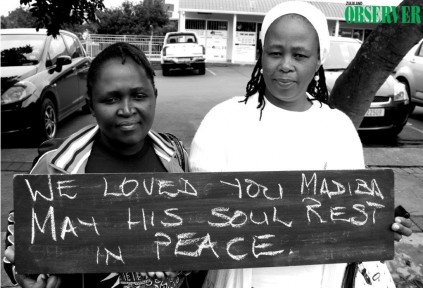 ZULULAND
OBSERVER
WE LOVED YOU MADIBA
MAY HIS SOUL REST
IN PEACE.